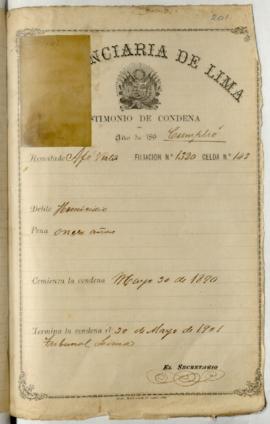 201
NCIARIA DE LIMA
STIMONIO DE CONDENA
Año de 189 Cumplió
Rematado Afº FILIACION N.º 1320 CELDA N.º 143
Delito Homicidio
Pena once años
Comienza la condena Mayo 30 de 1890
Termina la condena el 30 de Mayo de 1901
Tribunal Lima
EL SECRETARIO